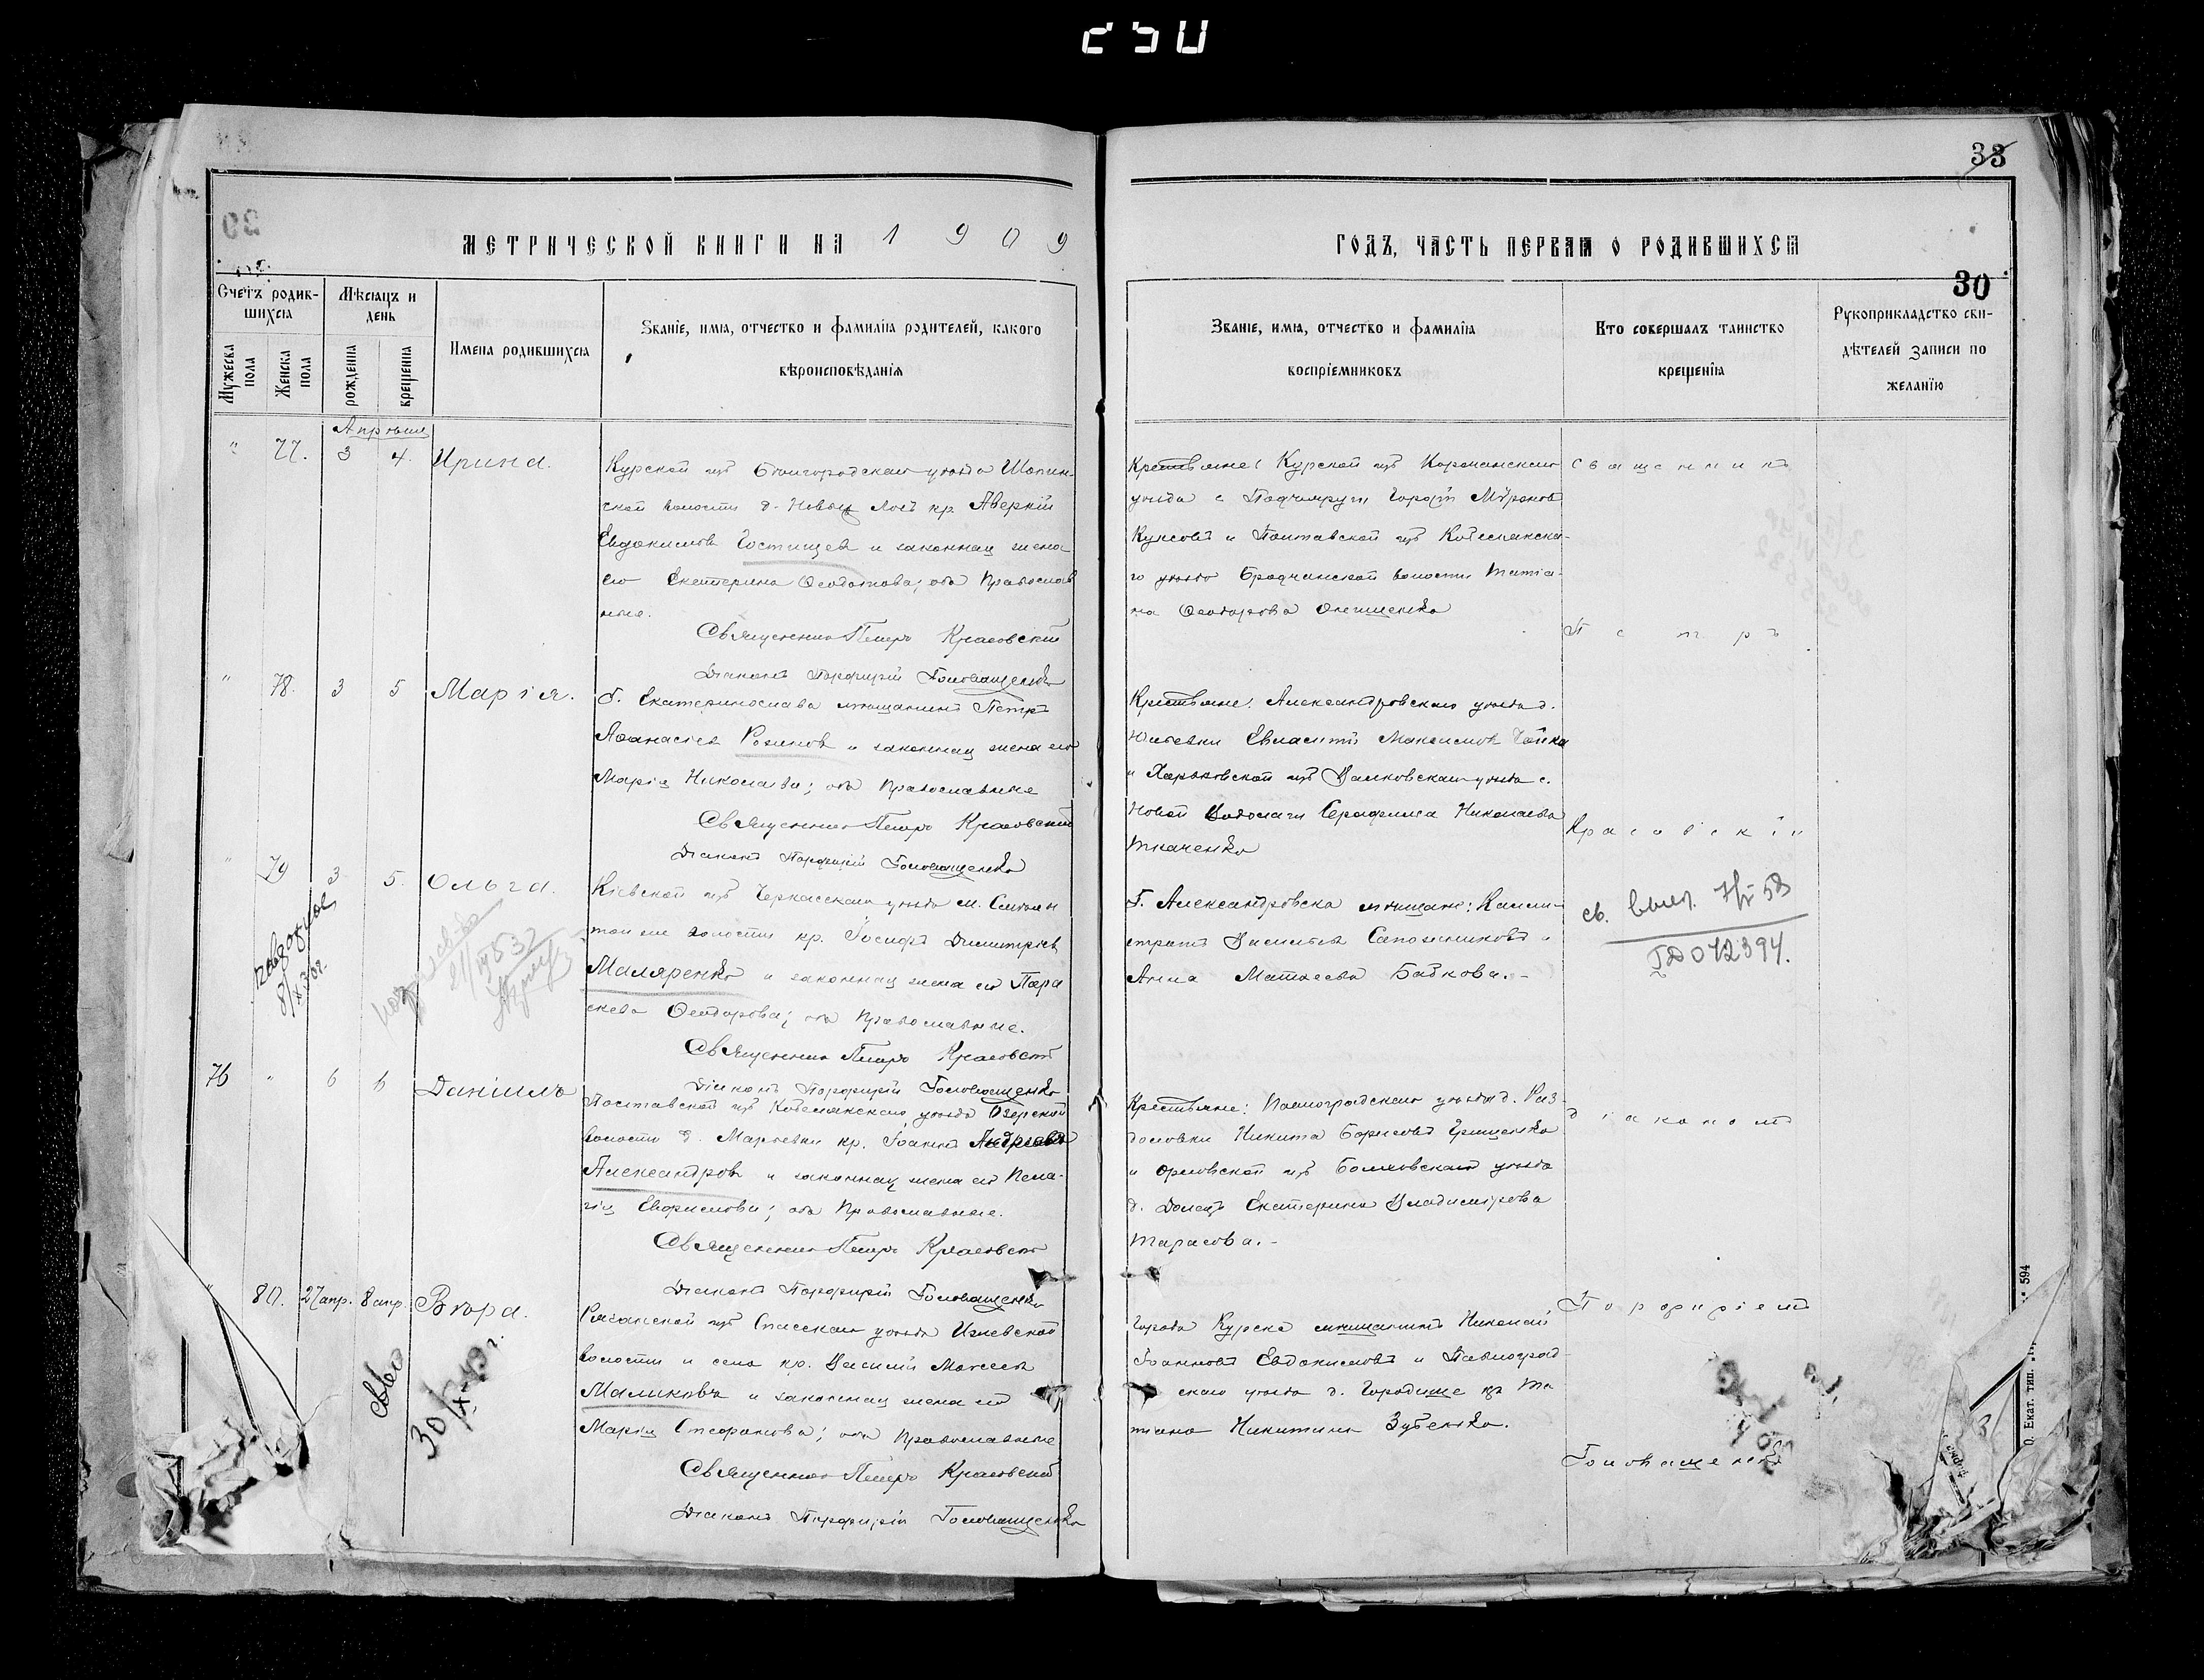 250
33
МЕТРИЧЕСКОЙ КНИГИ НА 1909
ГОДЪ, ЧАСТЬ ПЕРВАЯ О РОДИВШИХСЯ
30
Счетъ родив-
шихся
Мужеска пола
Женска пола
Мѣсяцъ и
день
рожденія
крещенія
Имена родившихся
Званіе, имя, отчество и фамилія родителей, какого
вѣроисповѣданія
Званіе, имя, отчество и фамилія
воспріемниковъ
Кто совершалъ таинство
крещенія
Рукоприкладство сви-
дѣтелей записи по
желанію
Апрѣль
" 77. 3 4. Ирина.
Курской губ Бѣлгородскаго уѣзда Шопин-
ской волости д. Новый Логъ кр. Аверкій
Евдокимовъ Гостищев и законная жена
его Екатерина Ѳеодотова; оба Православ
ные.
Священникъ Петръ Красовскій
Діаконъ Порфирій Головащенко
Крестьяне: Курской губ Корочанскаго
уѣзда с Подчируги
Кулсовъ и Полтавской губ Кобелякска-
го уѣзда Бродчинской волости Татіа-
на Ѳеодорова Онищенко
Священникъ
Петръ
" 78. 3 5 Марія.
Г. Екатеринослава мѣщанинъ Петръ
Аѳанасіев Розинов и законная жена его
Марія Николаева; оба Православные
Священникъ Петръ Красовскій
Діаконъ Порфирій Головащенко
Крестьяне: Александровскаго уѣзда д.
Юльевки Евлампій Максимов Чайка
и Харьковской губ Валковскаго уѣзда с.
Новой Водолаги Серафима Николаева
Ткаченко
Красовскій
" 79 3 5. Ольга.
Кіевской губ Черкасскаго уѣзда м. Смѣлы
той же волости кр. Іосифъ Димитріев
Маляренко и законная жена его Пара
скева Ѳеодорова; оба Православные.
Священникъ Петръ Красовскій
Діаконъ Порфирій Головащенко
Г. Александровска мѣщане: Калли-
стратъ Васильев Сапожниковъ и
Анна Матѳеева Бабкова.-
св. выд.
ГД 072394.
76 " 6 6 Даніилъ
Полтавской губ Кобелякскаго уѣзда Озерской
волости д. Марьевки кр. Іоаннъ Андреевъ
Александров и законная жена его Пела-
гія Ефримова; оба Православные.
Священникъ Петръ Красовскій
Діаконъ Порфирій Головащенко
Крестьяне: Павлоградскаго уѣзда д. Раз-
доловки Никита Борисовъ Грищенко
и Орловской губ Болховскаго уѣзда
д. Долец Екатерина Владимірова
Тарасова.-
діакономъ
" 80. 27 апр. 8 апр. Вѣра.
Рязанской губ Спасскаго уѣзда Ижевской
волости и села кр. Василій Моѵсеев
Маликовъ и законная жена его
Марія Стефанова; оба Православные
Священникъ Петръ Красовскій
Діаконъ Порфирій Головащенко
Города Курска мѣщанинъ Николай
Іоанновъ Евдокимовъ и Павлоград-
скаго уѣзда д. Городище кр Та
тіана Никитина Зубенко.
Порфиріемъ
Головащенко
594
О. Екат. тип.